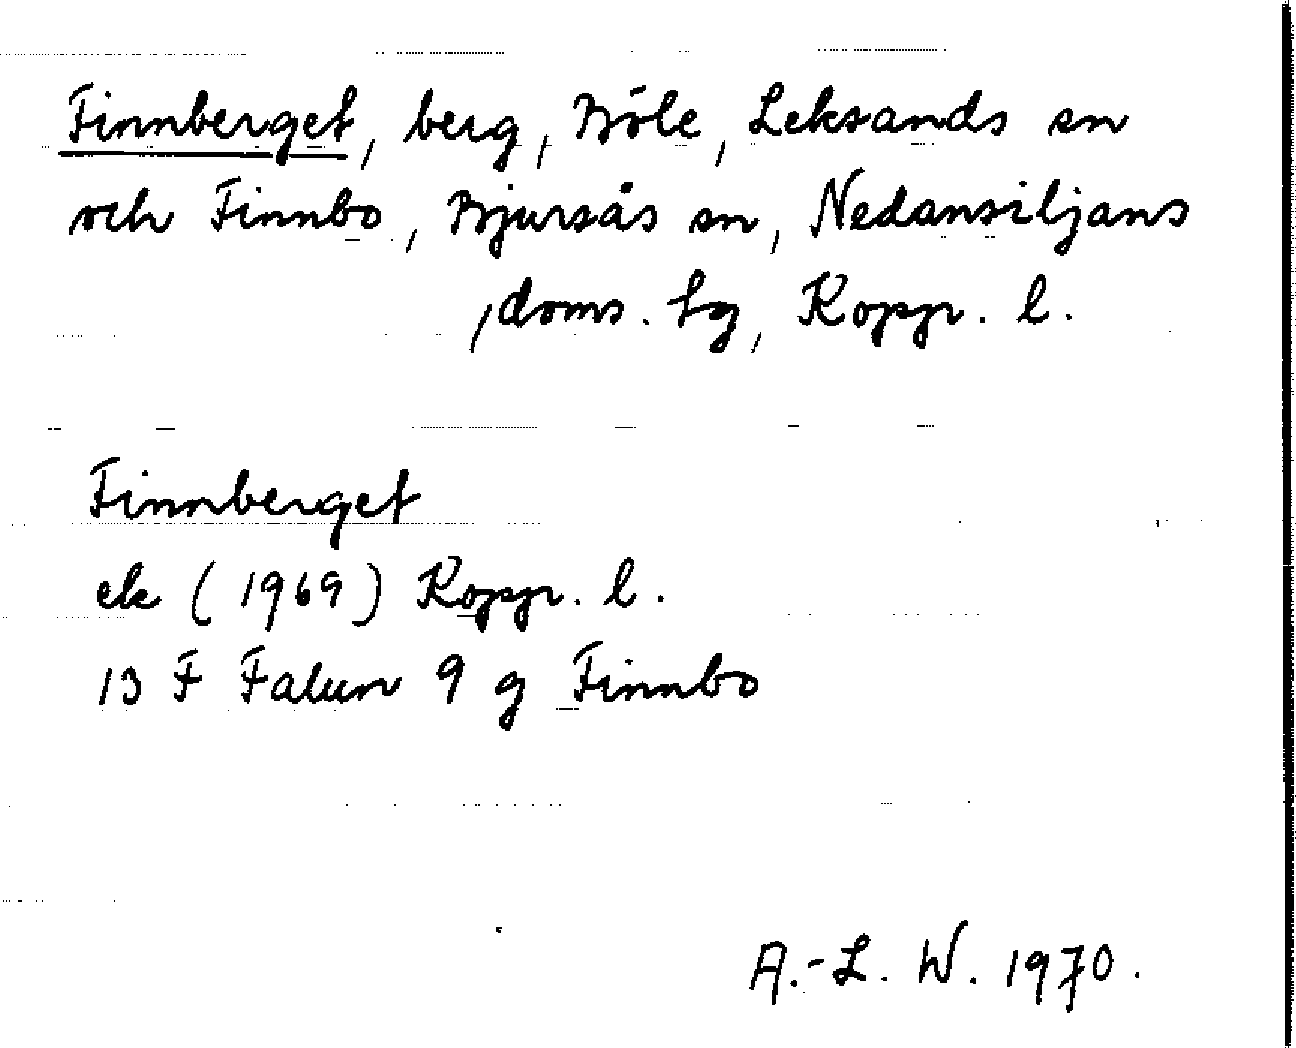 Finnberget, berg, Böle, Leksands sn
och Finnbo, Bjursås sn, Nedansiljans
doms. tg, Koppr. l.
Finnberget
ek (1969) Koppr. l.
13 F Falun 9 g Finnbo
A.-L. W. 1970.